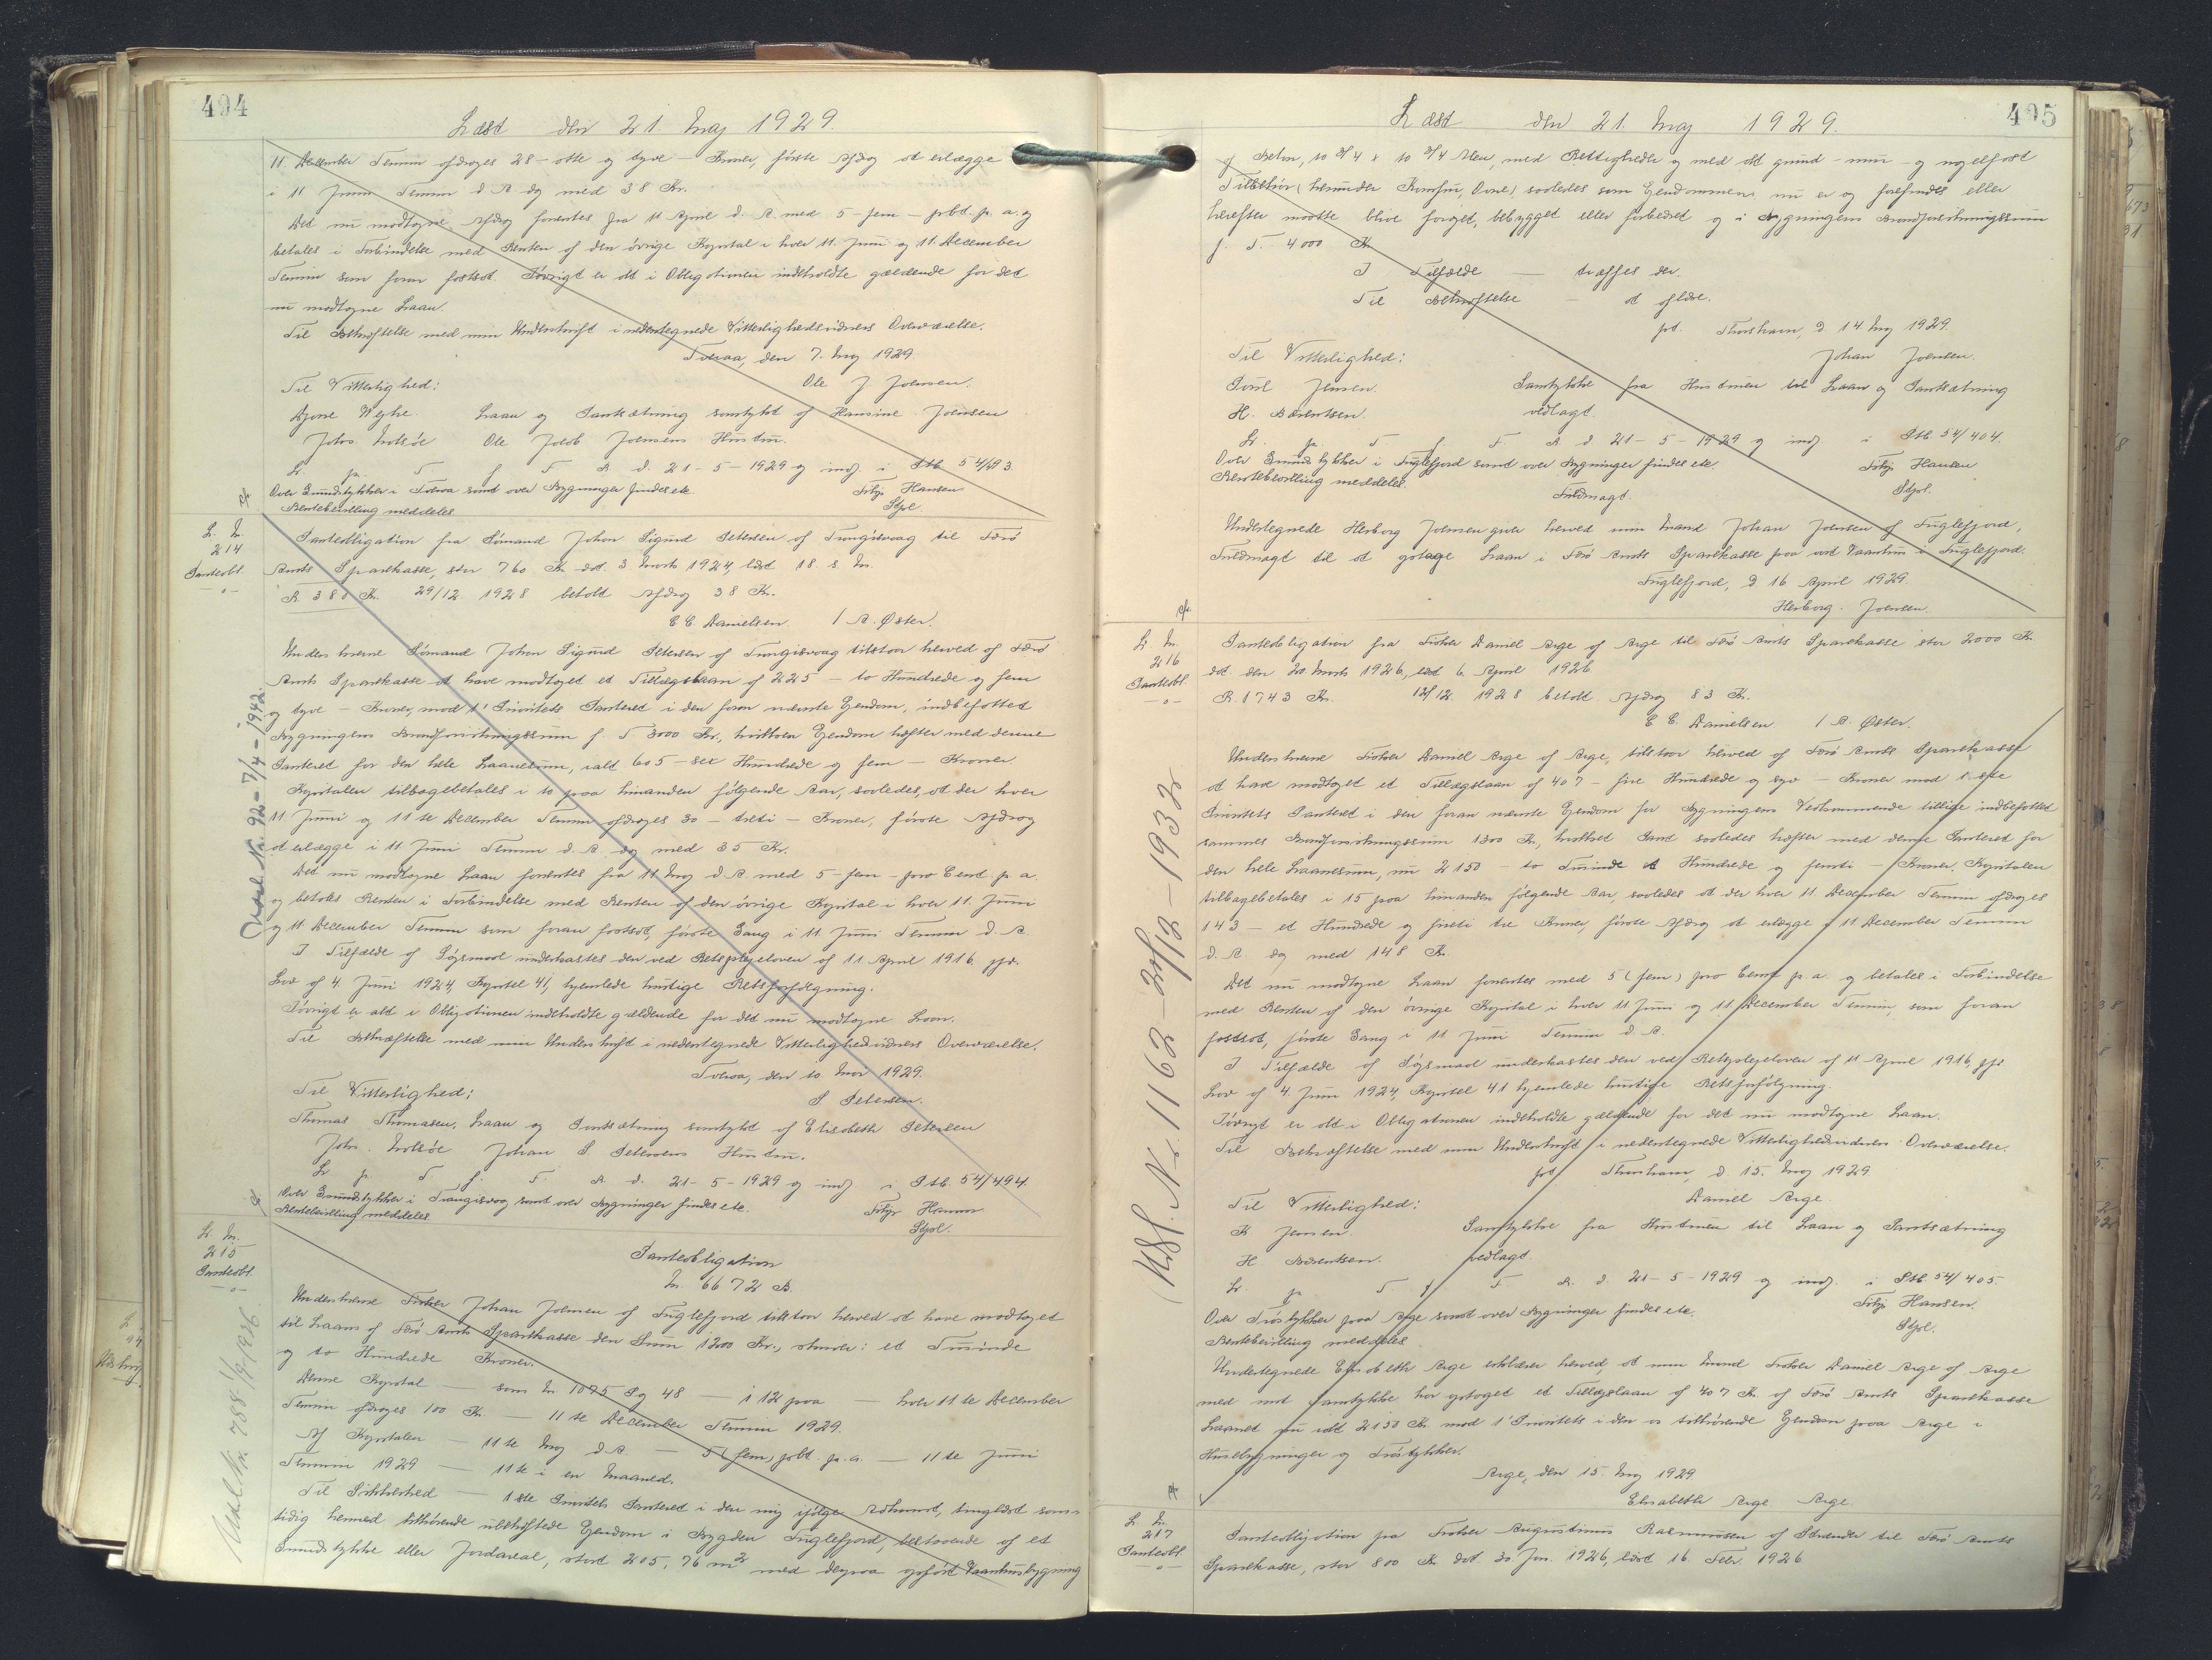 494
Læst den 21. Maj 1929.
11. December Termin afdrages 28 - otte og tyve - Kroner, første Afdrag at erlægge
i 11 Juni Termin d. A. dog med 38 Kr.
Det nu modtagne Afdrag forrentes fra 11 April d. A. med 5 - fem - pCt. p. a. og
betales i Forbindelse med Renten af den øvrige Kapital i hver 11. Juni og 11. December
Termin som foran fastsat. Iøvrigt er alt i Obligationen indeholdte gældende for det
nu modtagne Laan.
Til Bekræftelse med min Underskrift i nedentegnede Vitterlighedsvidners Overværelse.
Tveraa, den 7. Maj 1929.
Ole J. Joensen.
Til Vitterlighed:
Laan og Pantsætning samtykt af Hansine Joensen
Johs. Ole Jacob Joensens Hustru.
L. p. T. f. F. A. d. 21-5-1929 og indf. i Ptb. 54/493.
Over Grundstykker i Tveraa samt over Bygninger findes etc.
Rentebevilling meddeles
Hansen
L. Nr.
214
Panteobl.
- " -
Panteobligation fra Sømand Johan Sigurd Petersen af Trangisvaag til Færø
Amts Sparekasse, stor 760 Kr. dat. 3. Marts 1924, læst 18. s. M.
R. 380 Kr. 29/12 1928 betalt Afdrag 38 Kr.
C. C. Danielsen / A. Øster.
Underskrevne Sømand Johan Sigurd Petersen af Trangisvaag tilstaar herved af Færø
Amts Sparekasse at have modtaget et Tillægslaan af 225 - to Hundrede og fem
og tyve - Kroner, mod 1' Prioritets Panteret i den foran nævnte Ejendom, indbefattet
Bygningens Brandforsikringssum f. T. 3000 Kr., hvilken Ejendom hæfter med denne
Panteret for den hele Laanesum, ialt 605 - sex Hundrede og fem - Kroner.
Kapitalen tilbagebetales i 10 paa hinanden følgende Aar, saaledes, at der hver
11 Juni og 11 te December Termin afdrages 30 - treti - Kroner, første Afdrag
at erlægge i 11 Juni Termin d. A. dog med 35 Kr.
Det nu modtagne Laan forrentes fra 11 Maj d. A. med 5 - fem - pro Cent p. a.
og betales Renten i Forbindelse med Renten af den øvrige Kapital i hver 11. Juni
og 11 December Termin som foran fastsat, første Gang i 11. Juni Termin d. A.
I Tilfælde af Søgsmaal underkastes den ved Retsplejeloven af 11. April 1916, jfr.
Lov af 4. Juni 1924, Kapitel 41, hjemlede hurtige Retsforfølgning.
Iøvrigt er alt i Obligationen indeholdte gældende for det nu modtagne Laan.
Til Bekræftelse med min Underskrift i nedentegnede Vitterlighedsvidners Overværelse.
Tveraa, den 10. Mai 1929.
S. Petersen.
Til Vitterlighed:
Thomas Thomasen. Laan og Pantsætning samtykt af Elisabeth Petersen
Johs. Johan S. Petersens Hustru.
L. p. T. f. F. A. d. 21-5-1929 og indf. i Ptb. 54/494.
Over Grundstykker i Trangisvaag samt over Bygninger findes etc.
Rentebevilling meddeles
Hansen
Udsl. Nr. 92 - 7/4 - 1942.
L. Nr.
215
Panteobl.
- " -
Panteobligation
Nr. 6672 B.
Underskrevne Fisker Johan Joensen af Fuglefjord tilstaar herved at have modtaget
til Laans af Færø Amts Sparekasse den Sum 1200 Kr., skriver: et Tusinde
og to Hundrede Kroner.
Denne Kapital - som Nr. 1095 Pg. 48 - i 12 paa - hver 11 te December
Termin afdrages 100 Kr. - 11 te December Termin 1929.
Af Kapitalen - 11 te Maj d. A. - 5 (fem) pCt. p. a. - 11 te Juni
Termin 1929 - 11 te i en Maaned.
Til Sikkerhed - 1 ste Prioritets Panteret i den mig ifølge Adkomst, tinglæst sam-
tidig hermed tilhørende ubehæftede Ejendom i Bygden Fuglefjord, bestaaende af et
Grundstykke eller Jordareal, stort 205,76 m2 med derpaa opført Vaaningsbygning
Udsl. Nr. 788 1/9 1936
495
Læst den 21. Maj 1929.
af Beton, 10 3/4 x 10 3/4 Alen, med Rettigheder og med alt grund- mur- og nagelfast
Tilbehør (herunder Komfur, Ovne) saaledes som Ejendommen nu er og forefindes eller
herefter maatte blive forøget, bebygget eller forbedret og i Bygningens Brandforsikringssum
f. T. 4000 Kr.
I Tilfælde - træffes der.
Til Bekræftelse - at oplæse.
pt. Thorshavn, d. 14. Maj 1929.
Johan Joensen.
Til Vitterlighed:
Poul Jensen. Samtykke fra Hustruen til Laan og Pantsætning
H. Barentsen. vedlagt.
L. p. T. f. F. A. d. 21-5-1929 og indf. i Ptb. 54/404.
Over Grundstykker i Fuglefjord samt over Bygninger findes etc.
Rentebevilling meddeles.
Hansen
Fuldmagt.
Undertegnede Herborg Joensen giver herved min Mand Johan Joensen af Fuglefjord,
Fuldmagt til at optage Laan i Færø Amts Sparekasse paa vort Vaanhus i Fuglefjord.
Fuglefjord, d. 16. April 1929.
Herborg Joensen.
L. Nr.
216
Panteobl.
- " -
Panteobligation fra Fisker Daniel Arge af Arge til Færø Amts Sparekasse stor 2000 Kr.
dat. den 20 Marts 1926, læst 6. April 1926
R. 1743 Kr. 12/12 1928 betalt Afdrag 83 Kr.
C. C. Danielsen / A. Øster.
Underskrevne Fisker Daniel Arge af Arge, tilstaar herved af Færø Amts Sparekasse
at have modtaget et Tillægslaan af 407 - fire Hundrede og syv - Kroner mod 1 ste
Prioritets Panteret i den foran nævnte Ejendom for Bygningens Vedkommende tillige indbefattet
sammes Brandforsikringssum 1300 Kr., hvilket Pant saaledes hæfter med denne Panteret for
den hele Laanesum, nu 2150 - to Tusinde et Hundrede og femti - Kroner. Kapitalen
tilbagebetales i 15 paa hinanden følgende Aar, saaledes at der hver 11. December Termin afdrages
143 - et Hundrede og firti tre Kroner, første Afdrag at erlægge i 11. December Termin
d. A. dog med 148 Kr.
Det nu modtagne Laan forrentes med 5 (fem) pro Cent p. a. og betales i Forbindelse
med Renten af den øvrige Kapital i hver 11 Juni og 11. December Termin, som foran
fastsat, første Gang i 11 Juni Termin d. A.
I Tilfælde af Søgsmaal underkastes den ved Retsplejeloven af 11 April 1916, jfr.
Lov af 4. Juni 1924, Kapitel 41 hjemlede hurtige Retsforfølgning.
Iøvrigt er alt i Obligationen indeholdte gældende for det nu modtagne Laan.
Til Bekræftelse med min Underskrift i nedentegnede Vitterlighedsvidners Overværelse.
pt. Thorshavn, d. 15. Maj 1929
Daniel Arge.
Til Vitterlighed:
K. Jensen. Samtykke fra Hustruen til Laan og Pantsætning
H. Barentsen. vedlagt.
L. p. T. f. F. A. d. 21-5-1929 og indf. i Ptb. 54/405.
Over Træstykker paa Arge samt over Bygninger findes etc.
Rentebevilling meddeles
Hansen.
Undertegnede Elisabeth Arge erklærer herved, at min Mand Fisker Daniel Arge af Arge
med mit Samtykke har optaget et Tillægslaan af 407 Kr. af Færø Amts Sparekasse
Laanet nu ialt 2150 Kr. mod 1' Prioritets i den os tilhørende Ejendom paa Arge i
Husebygninger og Træstykker.
Arge, den 15. Maj 1929
Elisabeth Arge Arge.
Udsl. Nr. 1162 - 30/12 - 1932
L. Nr.
217
Panteobl.
- " -
Panteobligation fra Fisker Augustinus Rasmussen af Strænder til Færø Amts
Sparekasse, stor 800 Kr. dat. 30. Jan. 1926, læst 16. Febr. 1926